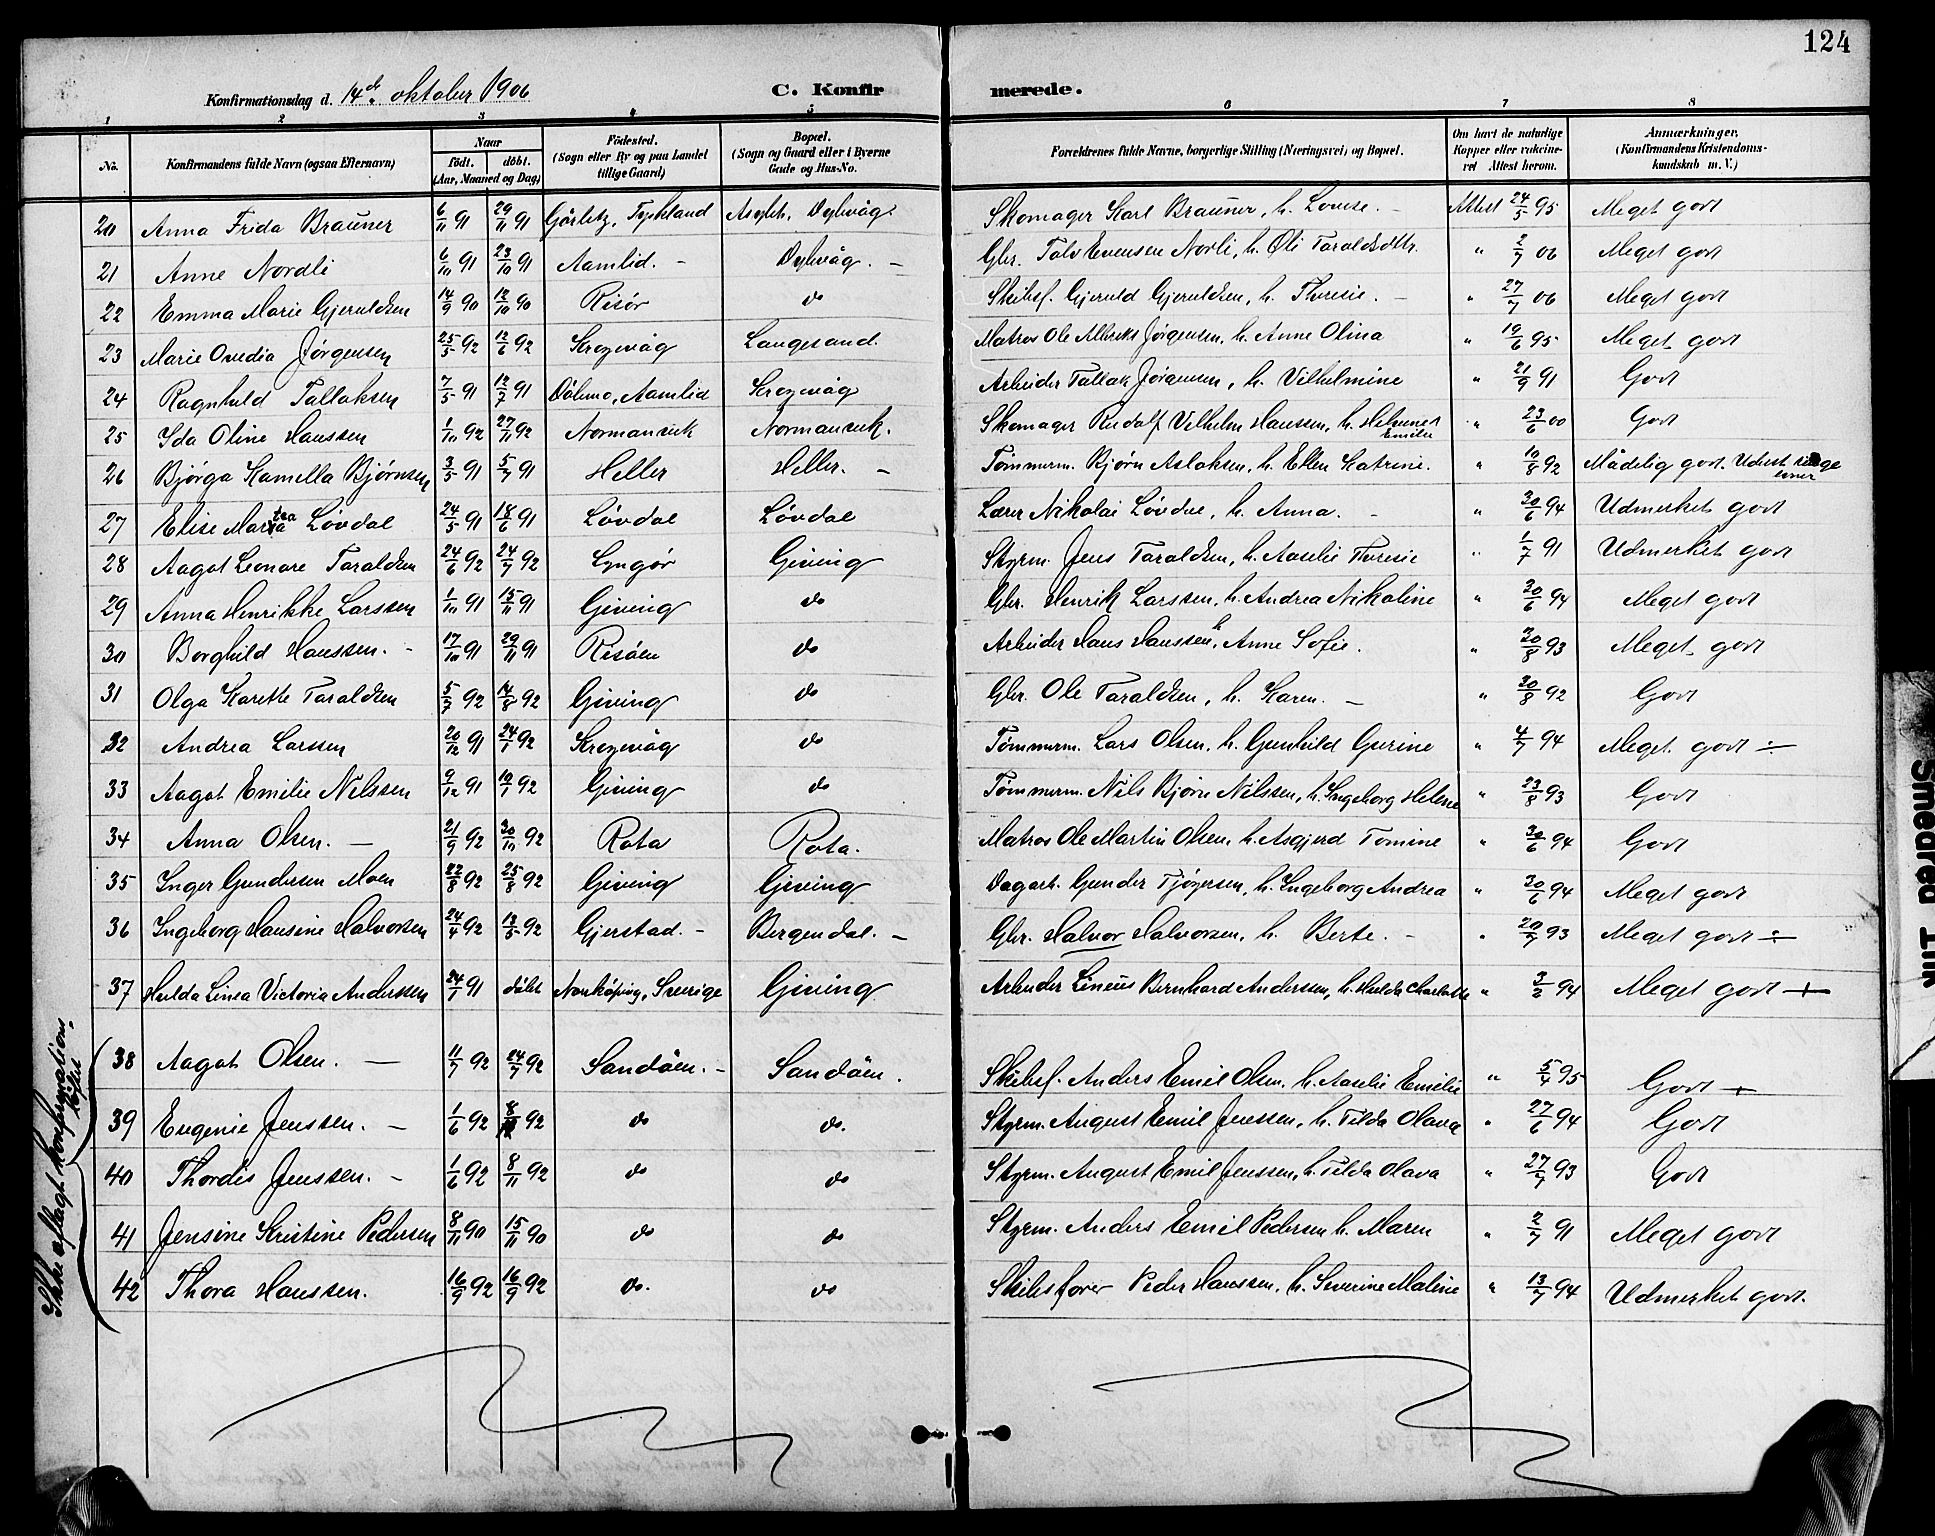 124
Konfirmationsdag d. 14de oktober 1906 C. Konfirmerede.
1 2 3 4 5 6 7 8
No. Konfirmandens fulde Navn (ogsaa Efternavn) Naar født. døbt. (Aar, Maaned og Dag) Fødested. (Sogn eller By og paa Landet tillige Gaard) Bopæl. (Sogn og Gaard eller i Byerne Gade og Hus-No. Forældrenes fulde Navne, borgerlige Stilling (Næringsvei) og Bopæl. Om havt de naturlige Kopper eller vakcineret Attest herom. Anmærkninger. (Konfirmandens Kristendomskundskab m. V.)
20 Anna Frida Brauner 6/11 91 29/11 91 Görlitz, Tyskland Asylet, Dybvåg. Skomager Karl Brauner, h. Lovise. - Attest 24/5 95 Meget godt
21 Anne Nordli 6/10 91 23/10 91 Aamlid. - Dybvåg. - Gbr. Talv Evensen Norli, h. Oli Taraldsdttr. " 2/7 06 Meget godt
22 Emma Marie Gjeruldsen 14/9 90 12/10 90 Risör do Skibsf. Gjeruld Gjeruldsen, h. Theresie. - " 27/7 06 Meget godt
23 Marie Ovedia Jørgensen 25/5 92 12/6 92 Krogevåg Langesand. Matros Ole Albreks Jørgensen, h. Anne Olina " 19/6 95 Meget godt
24 Ragnhild Tallaksen 7/5 91 12/7 91 Dölemo, Aamlid Krogevåg Arbeider Tallak Jörgensen, h. Vilhelmine " 21/9 91 Godt
25 Ida Oline Hanssen 1/10 92 27/11 92 Normansvik Normansvik. Skomager Rudolf Vilhelm Hanssen, h. Helene Emilie " 23/6 00 Godt
26 Bjørga Kamella Bjørnsen 3/5 91 5/7 91 Heller Heller. - Tømmerm. Bjørn Aslaksen, h. Ellen Katrine. " 10/8 92 Mådelig godt. Udest ringe evner
27 Elise Martea Lövdal 24/5 91 18/6 91 Lövdal Lövdal Lærer Nikolai Lövdal, h. Anna. - " 30/6 94 Udmerket godt
28 Aagot Leonore Taraldsen 24/6 92 24/7 92 Lyngör Giving Styrm. Jens Taraldsen, h. Aaselie Theresie " 1/7 91 Udmerket godt
29 Anna Henrikke Larssen 1/10 91 15/11 91 Giving do Gbr. Henrik Larssen, h. Andrea Nikoline " 30/6 94 Meget godt
30 Borghild Hanssen. - 17/10 91 29/11 91 Risöen do Arbeider Hans Hanssen, h. Anne Sofie. " 30/8 93 Meget godt
31 Olga Karethe Taraldsen 5/7 92 14/8 92 Giving do Gbr. Ole Taraldsen, h. Karen. - " 30/8 92 Godt
32 Andrea Larssen 20/12 91 24/1 92 Krogevåg do Tømmerm. Lars Olsen, h. Gunhild Gurine " 4/7 94 Meget godt ÷
33 Aagot Emilie Nilssen 9/12 91 10/1 92 Giving do Tømmerm. Nils Bjørn Nilssen, h. Ingeborg Helene " 23/8 93 Godt
34 Anna Olsen. - 21/9 92 30/10 92 Rota Rota. Matros Ole Martin Olsen, h. Asgjerd Tomine " 30/6 94 Godt
35 Inger Gundersen Moen 22/8 92 25/8 92 Giving Giving Dagarb. Gunder Tjøgersen, h. Ingeborg Andrea " 30/6 94 Meget godt
36 Ingeborg Hansine Halvorsen 24/4 92 13/5 92 Gjerstad. - Bergendal. - Gbr. Halvor Halvorsen, h. Berte. - " 20/7 93 Meget godt ÷
37 Hulda Linea Victoria Anderssen 24/1 91 döbt Norrköping, Sverige Giving Arbeider Lineus Bernhard Anderssen, h. Hulda Charlotte " 3/2 94 Meget godt +
Ikke aflagt konfirmationsløftet
38 Aagot Olsen. - 11/7 92 24/7 92 Sandöen. - Sandöen. Skibsf. Anders Emil Olsen, h. Aaselie Emilie " 5/4 95 Godt +
39 Eugenie Jenssen. - 1/6 92 8/11 92 do do. Styrm. August Emil Jenssen, h. Tilda Olava " 27/6 94 Godt
40 Thordis Jenssen. - 1/6 92 8/11 92 do do Styrm. August Emil Jenssen, h. Tilda Olava " 27/7 93 Godt
41 Jensine Kristine Pedersen 8/11 90 15/11 90 do do Styrm. Anders Emil Pedersen h. Maren " 2/7 91 Meget godt
42 Thora Hanssen. 16/9 92 16/9 92 do. do Skibsfører Peder Hanssen, h. Severine Maline " 13/7 94 Udmerket godt.
Smeared Ink